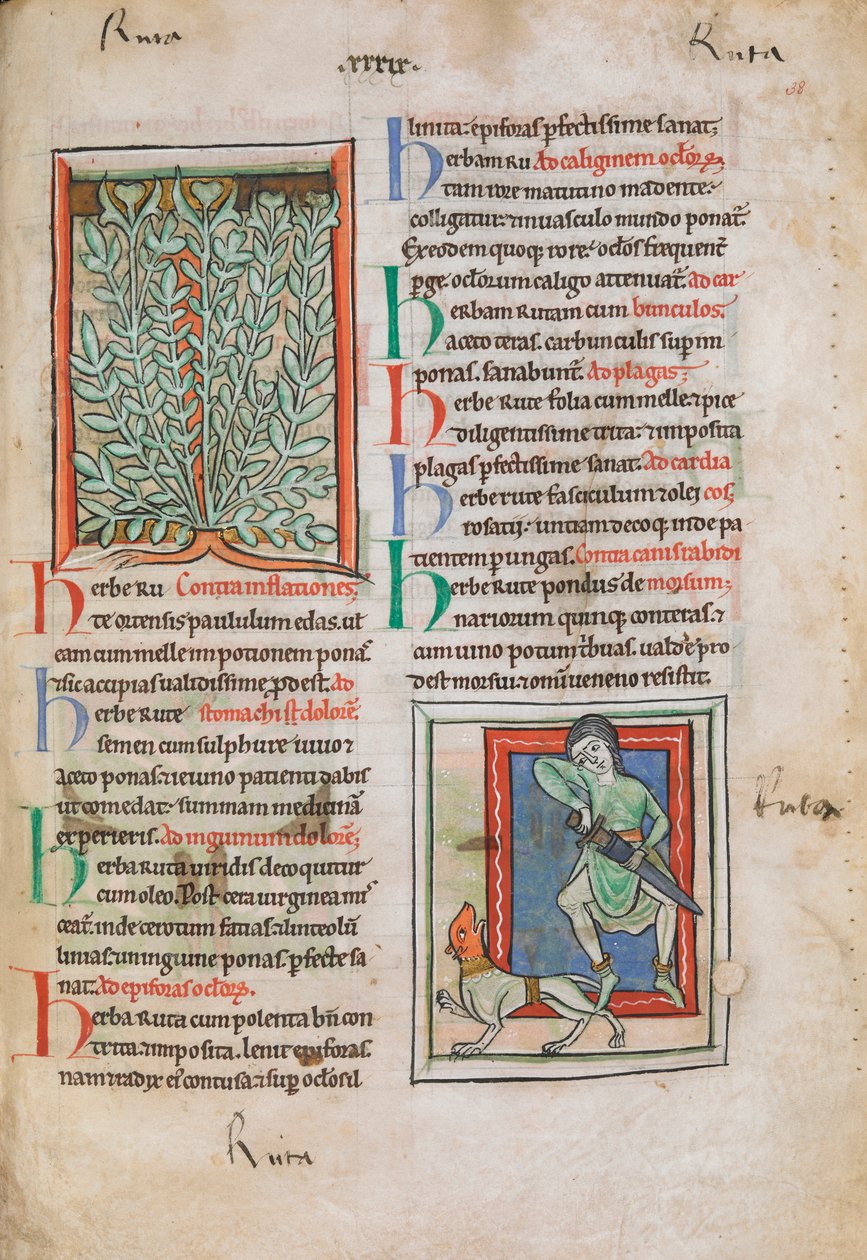 Ruta
Ruta
.xxxix.
38
Herbe Ru Contra inflationes;
te ortensis paululum edas. ul̄
eam cum melle in potionem ponaˢ.
⁊ sic accipias validissime ꝓdest. Ad
Herbe Rute stomachi ⁊ ꝉ dolorē.
semen cum sulphure uiuo ⁊
aceto ponas. ⁊ ieiuno patienti dabis
ut comedat. summam medicinā
experieris. Ad ingūinum dolorē;
Herba Ruta viridis decoquitur
cum oleo. Post cera virginea mis
ceat᷑. inde cerotum facias. ⁊ linteolū
linias. ⁊ in inguine ponas. ꝑfecte sa
nat. Ad epiforas oclorꝝ.
Herba Ruta cum polenta bn̄ con
trita. ⁊ imposita. lenit epiforas.
nam ⁊ radix eiꝰ contusa. ⁊ suꝑ oclos il
linita. epiforas ꝑfectissime sanat;
Herbam Ru Ad caliginem oclorꝝ;
tam rore matutino madente.
colligatur. ⁊ in uasculo mundo ponat᷑.
Ex eodem quoqꝫ rore. oclos frequent᷑
ꝑge. oclorum caligo attenuat᷑. Ad car
Herbam Rutam cum bunculos.
aceto teras. carbunculis suꝑ in
ponas. sanabunt᷑. Ad plagas;
Herbe Rute folia cum melle. ⁊ pice
diligentissime trita. ⁊ imposita
plagas ꝑfectissime sanat. Ad cardia
Herbe rute fasciculum ⁊ olei cos;
rosatii. untiam decoqꝫ. inde pa
tientem ꝑungas. Contra canis rabidi
Herbe Rute pondus de morsum;
nariorum quinqꝫ conteras. ⁊
cum uino potum t̾buas. ualde pro
dest morsui. ⁊ om̄i ueneno resistit.
Ruta
Ruta